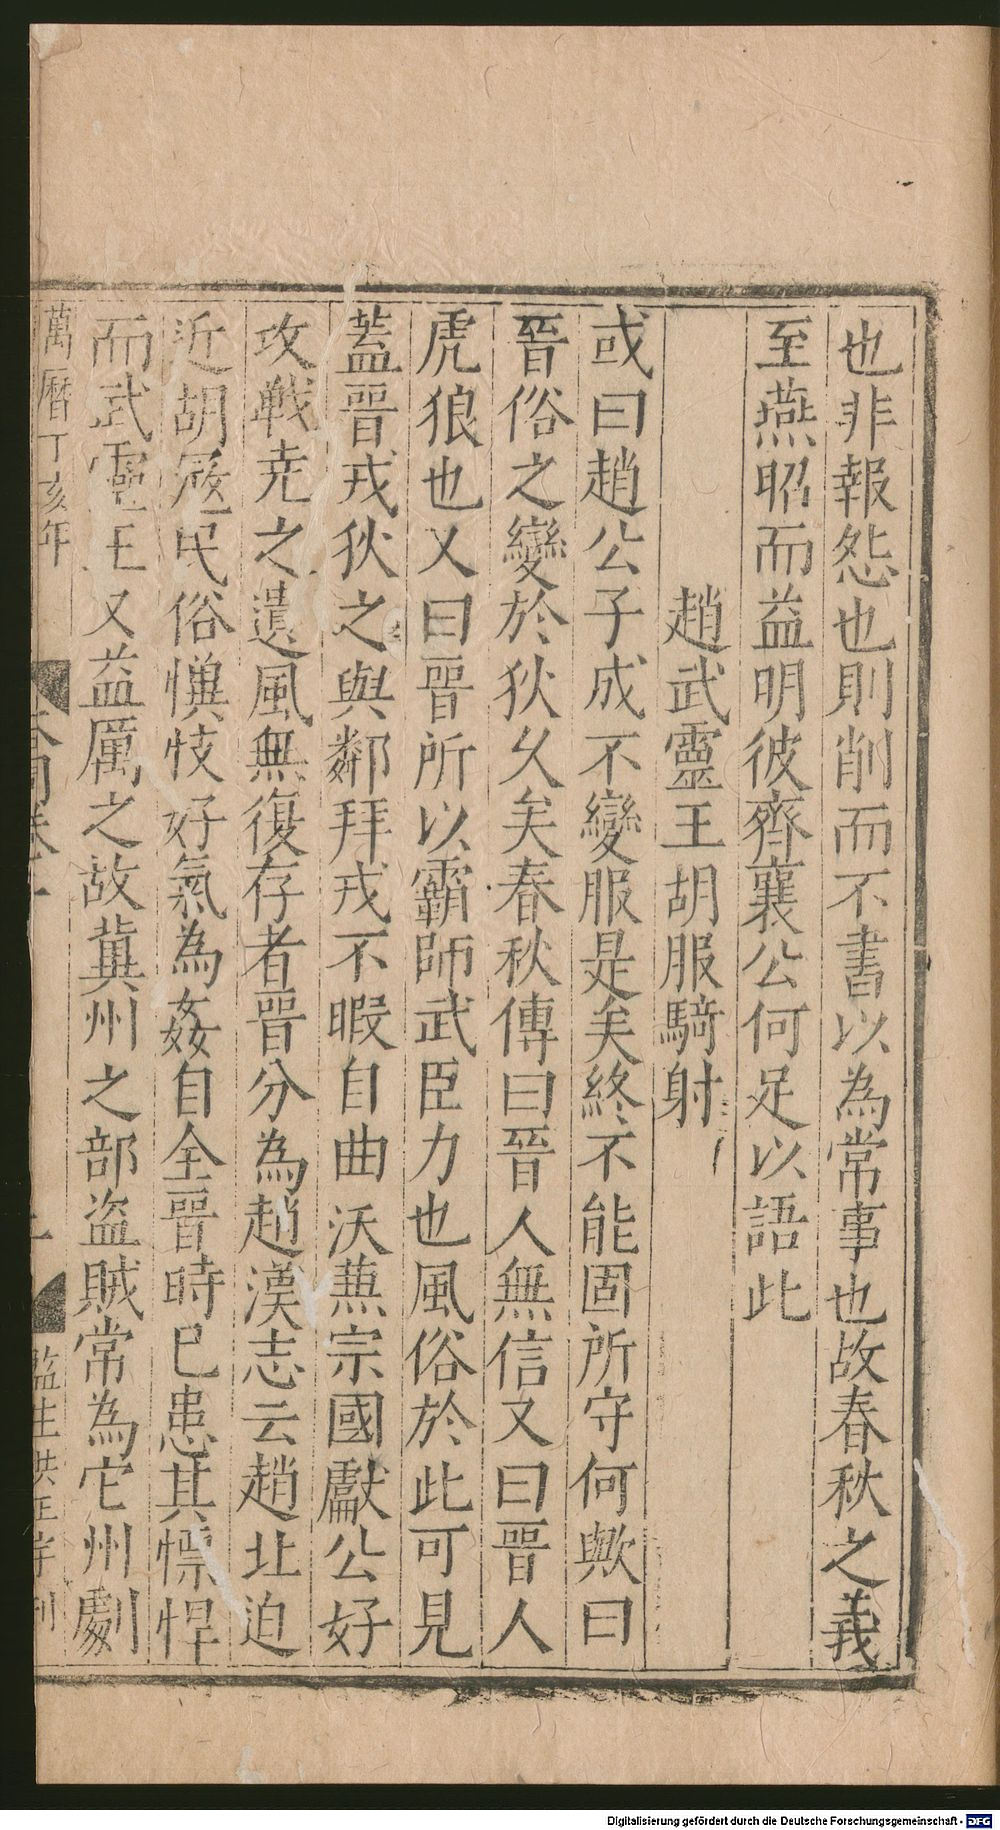 也非報怨也則削而不書以為常事也故春秋之義
至燕昭而益明彼齊襄公何足以語此
趙武靈王胡服騎射
或曰趙公子成不變服是矣終不能固所守何歟曰
晉俗之變於狄久矣春秋傳曰晉人無信又曰晉人
虎狼也又曰晉所以霸師武臣力也風俗於此可見
蓋晉戎狄之與鄰拜戎不暇自曲沃蕪宗國獻公好
攻戰尭之遺風無復存者晉分為趙漢志云趙北迫
近胡冠民俗懻忮好氣為姦自全晉時已患其慓悍
而武靈王又益厲之故冀州之部盜賊常為它州劇
萬曆丁亥年
監生洪王刊
Digitalisierung gefördert durch die Deutsche Forschungsgemeinschaft - DFG